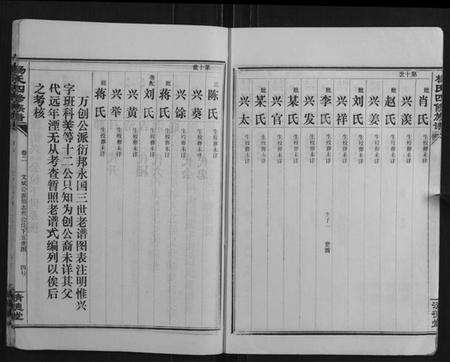 杨氏四修族谱
第十世
妣 肖氏
兴羡 生殁葬未详
妣 赵氏
兴姜 生殁葬未详
妣 刘氏
兴祥 生殁葬未详
妣 李氏
兴发 生殁葬未详
妣 某氏
兴官 生殁葬未详
妣 某氏
兴太 生殁葬未详
第十世
妣 陈氏
兴葵 生殁葬未详
兴徐 生殁葬未详
妣 蒋氏
刘氏
兴黄 生殁葬未详
兴举 生殁葬未详
妣 蒋氏
万创公派衍邦永国三世老谱图表注明惟兴
字班科美等十二公只知为创公裔未详其父
代远年湮无从考查暂照老谱式编列以俟后
之考核
杨氏四修族谱
卷二
清白堂